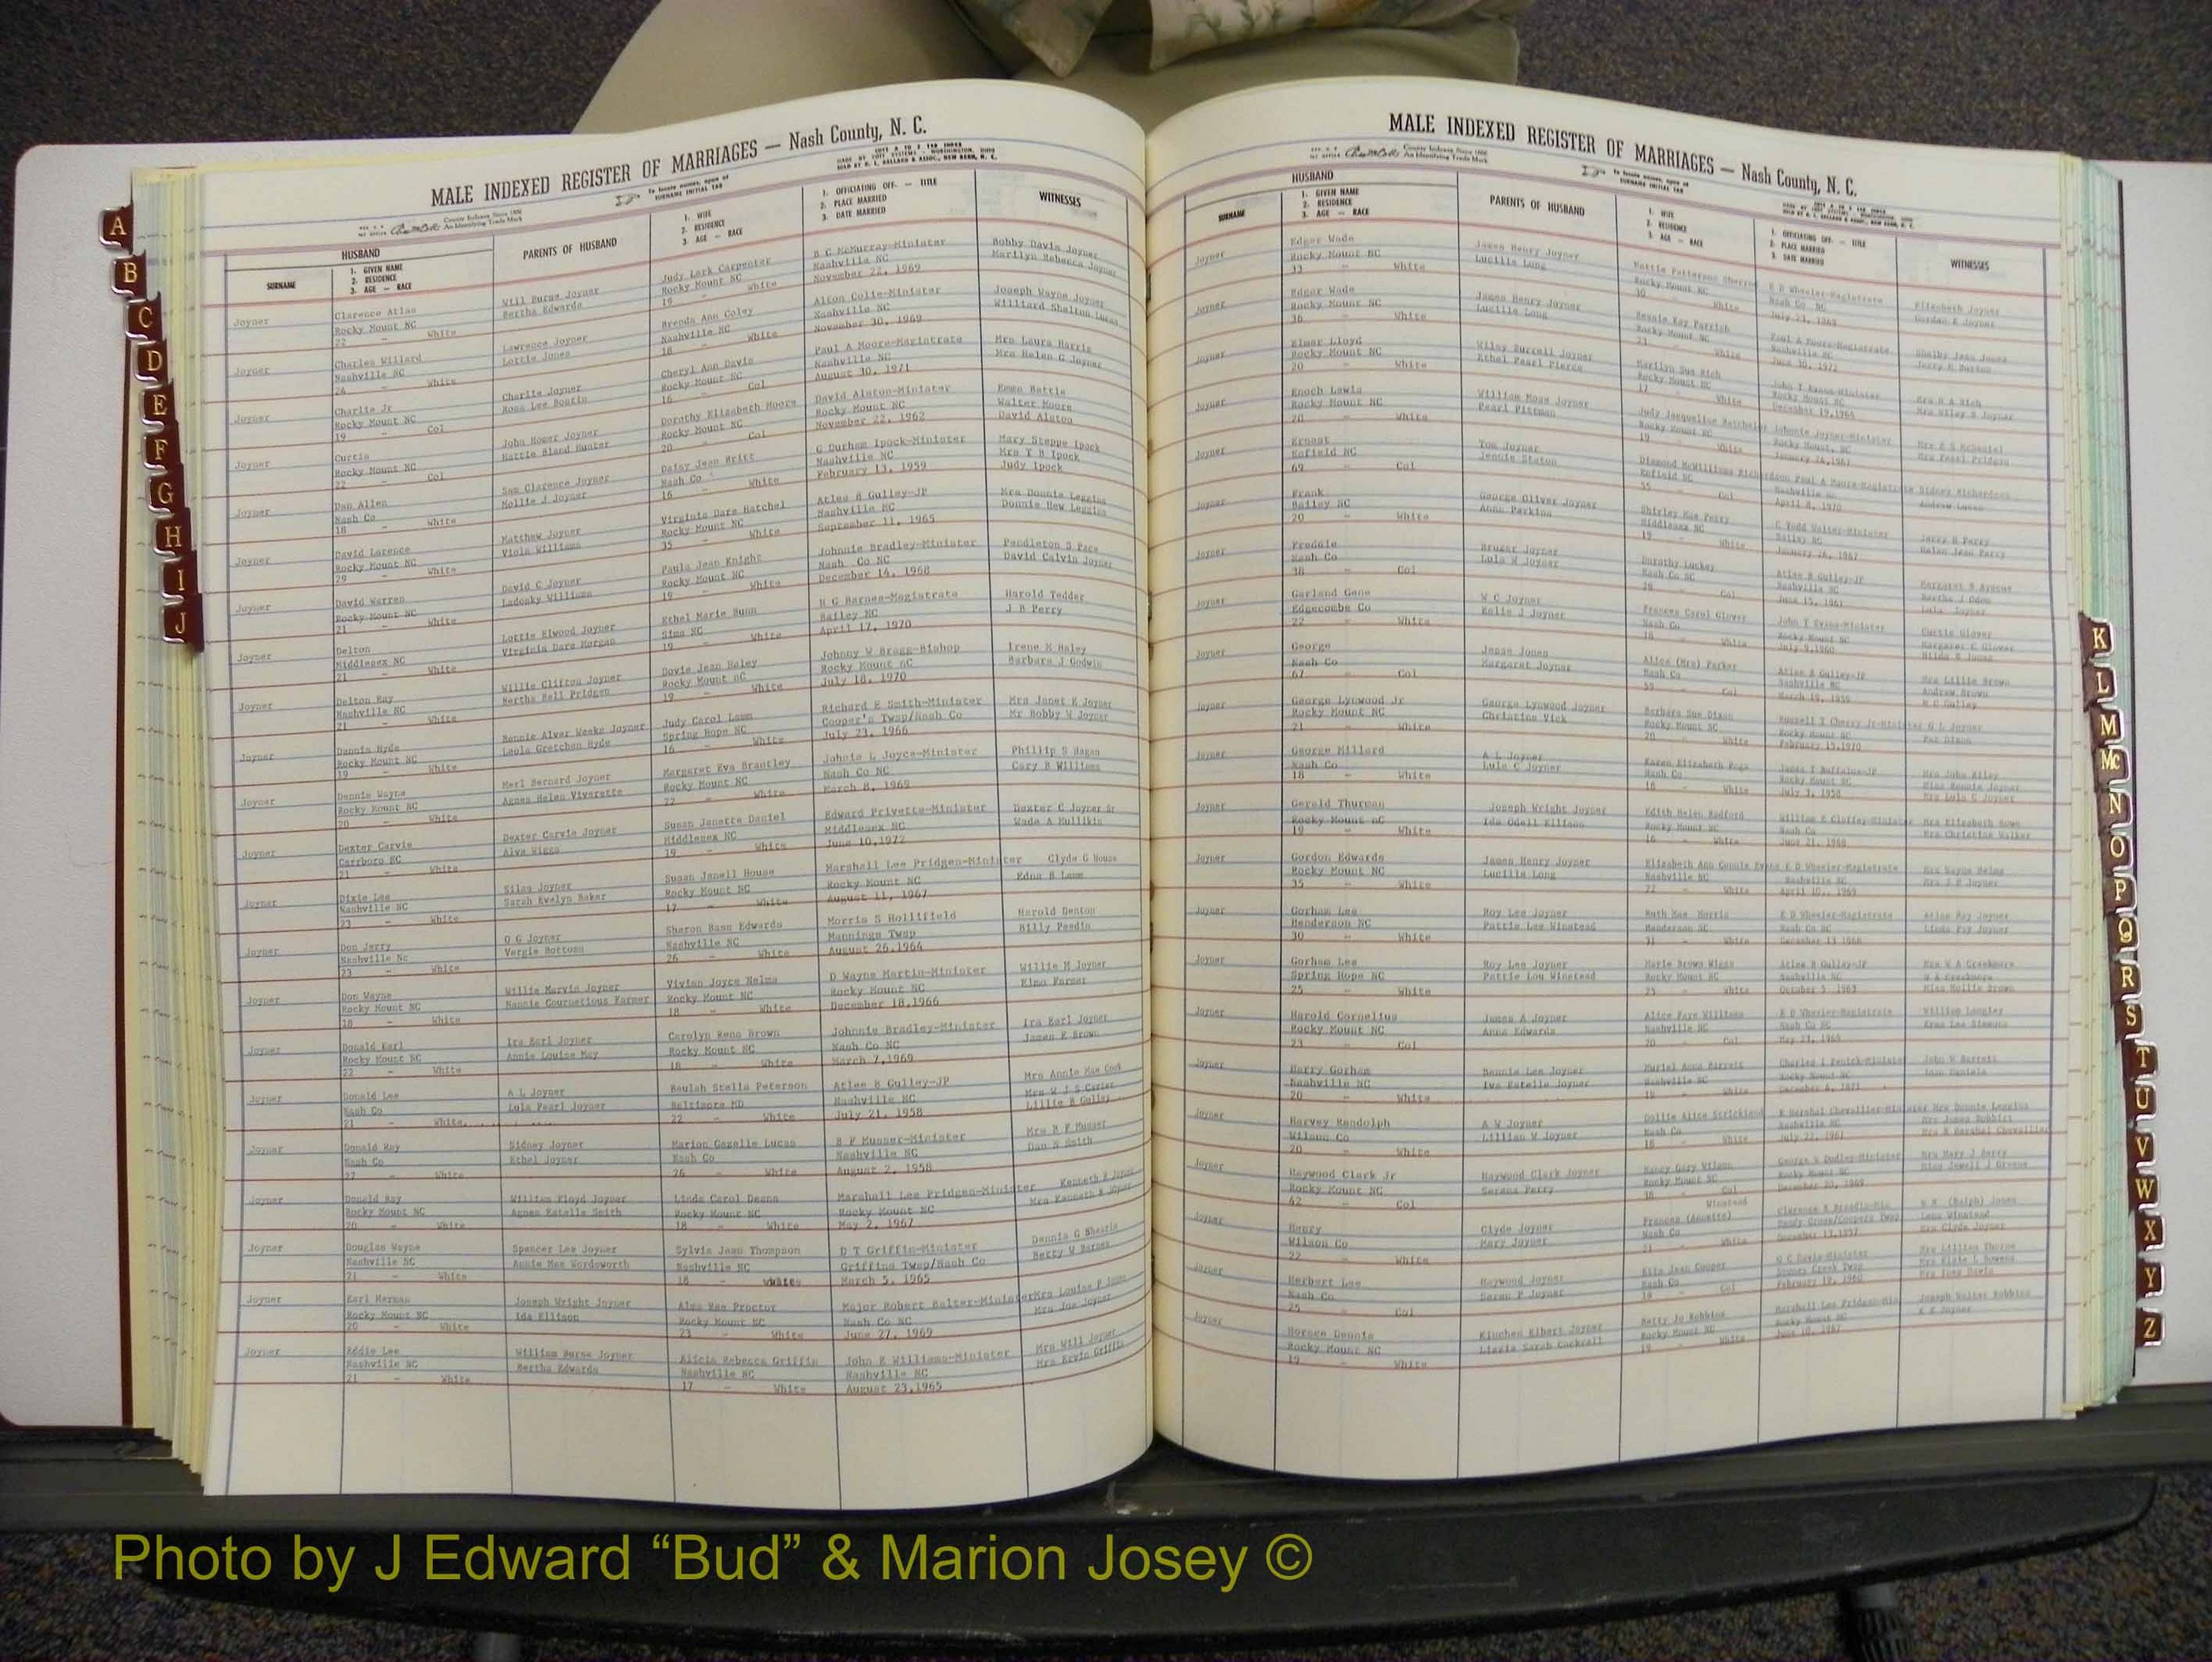 MALE INDEXED REGISTER OF MARRIAGES — Nash County, N. C.
HUSBAND
SURNAME
1. GIVEN NAME
2. RESIDENCE
3. AGE — RACE
PARENTS OF HUSBAND
1. WIFE
2. RESIDENCE
3. AGE — RACE
1. OFFICIATING OFF. — TITLE
2. PLACE MARRIED
3. DATE MARRIED
WITNESSES
Joyner Clarence Atlas Will Burns Joyner Judy Lark Carpenter B C McMurray-Minister Bobby Davis Joyner
Rocky Mount NC Bertha Edwards Rocky Mount NC Nashville NC Marilyn Rebecca Joyner
22 - White 19 - White November 22, 1969
Joyner Charles Willard Lawrence Joyner Brenda Ann Coley Alton Colie-Minister Joseph Wayne Joyner
Nashville NC Lottie Jones Nashville NC Nashville NC Williard Shelton Lucas
26 - White 18 - White November 30, 1969
Joyner Charlie Jr Charlie Joyner Cheryl Ann Davis Paul A Moore-Magistrate Mrs Laura Harris
Rocky Mount NC Rosa Lee Rocky Mount NC Nashville NC Mrs Helen G Joyner
19 - Col 16 - Col August 30, 1971
Joyner Curtis John Homer Joyner Dorothy Elizabeth Moore David Alston-Minister Emma Battle
Rocky Mount NC Mattie Bland Hunter Rocky Mount NC Rocky Mount NC Walter Moore
22 - Col 20 - Col November 22, 1962 David Alston
Joyner Dan Allen Sam Clarence Joyner Daisy Jean Britt G Durham Ipock-Minister Mary Steppe Ipock
Nash Co Mollie J Joyner Nash Co Nashville NC Mrs T B Ipock
18 - White 16 - White February 13, 1959 Judy Ipock
Joyner David Larence Matthew Joyner Virginia Dare Hatchel Atlee B Gulley-JP Mrs Donnie Leggins
Rocky Mount NC Viola Williams Rocky Mount NC Nashville NC Donnie Hew Leggins
29 - White 35 - White September 11, 1965
Joyner David Warren David C Joyner Paula Jean Knight Johnnie Bradley-Minister Pendleton S Pace
Rocky Mount NC Ladosky Williams Rocky Mount NC Nash Co NC David Calvin Joyner
21 - White 19 - White December 14, 1968
Joyner Delton Lottie Elwood Joyner Ethel Marie Bunn H G Barnes-Magistrate Harold Tedder
Middlesex NC Virginia Dare Morgan Sims NC Bailey NC J B Perry
21 - White 19 - White April 17, 1970
Joyner Delton Ray Willie Clifton Joyner Dovie Jean Haley Johnny W Bragg-Bishop Irene M Haley
Nashville NC Bertha Bell Pridgen Rocky Mount nC Rocky Mount nC Barbara J Godwin
21 - White 19 - White July 18, 1970
Joyner Dennis Hyde Bennie Alver Weaks Joyner Judy Carol Lamm Richard E Smith-Minister Mrs Janet K Joyner
Rocky Mount NC Leola Gretchen Hyde Spring Hope NC Cooper's Twsp/Nash Co Mr Bobby W Joyner
19 - White 16 - White July 23, 1966
Joyner Dennis Wayne Merl Bernard Joyner Margaret Eva Brantley Johnis L Joyce-Minister Phillip S Hagan
Rocky Mount NC Agnes Helen Vivarette Rocky Mount NC Nash Co NC Cary B Williams
20 - White 22 - White March 8, 1969
Joyner Dexter Carvis Dexter Carvis Joyner Susan Janette Daniel Edward Privette-Minister Dexter C Joyner Sr
Carrboro NC Alva Wiggs Middlesex NC Middlesex NC Wade A Mullikin
21 - White 19 - White June 10,1972
Joyner Dixie Lee Silas Joyner Susan Janell House Marshall Lee Pridgen-Minister Clyde G House
Nashville NC Sarah Evelyn Baker Rocky Mount NC Rocky Mount NC Edna B Lamm
23 - White 17 - White August 11, 1967
Joyner Don Jerry O G Joyner Sharon Bass Edwards Morris S Hollifield Harold Denton
Nashville Nc Vergie Bottoms Nashville NC Mannings Twsp Billy Peedin
23 - White 26 - White August 26,1964
Joyner Don Wayne Willie Marvin Joyner Vivian Joyce Nelms D Wayne Martin-Minister Willie M Joyner
Rocky Mount NC Nannie Cournetious Farmer Rocky Mount NC Rocky Mount NC Elmo Farmer
18 - White 18 - White December 18,1966
Joyner Donald Earl Ira Earl Joyner Carolyn Reno Brown Johnnie Bradley-Minister Ira Earl Joyner
Rocky Mount NC Annie Louise May Rocky Mount NC Nash Co NC James E Brown
22 - White 18 - White March 7,1969
Joyner Donald Lee A L Joyner Beulah Stella Peterson Atlee B Gulley-JP Mrs Annie Mae Cook
Nash Co Lula Pearl Joyner Baltimore MD Nashville NC Mrs W J S Carter
21 - White 22 - White July 21, 1958 Lillie B Gulley
Joyner Donald Ray Sidney Joyner Marion Gazelle Lucas B F Musser-Minister Mrs B F Musser
Nash Co Ethel Joyner Nash Co Nashville NC Dan S Smith
27 - White 26 - White August 2, 1958
Joyner Donald Ray William Floyd Joyner Linda Carol Deans Marshall Lee Pridgen-Minister Kenneth R Joyner
Rocky Mount NC Agnes Estelle Smith Rocky Mount NC Rocky Mount NC Mrs Kenneth R Joyner
20 - White 18 - White May 2, 1967
Joyner Douglas Wayne Spencer Lee Joyner Sylvia Jean Thompson D T Griffin-Minister Dennis G Shearin
Nashville NC Annie Mae Wordsworth Nashville NC Griffins Twsp/Nash Co Betty W Barnes
21 - White 18 - White March 5, 1965
Joyner Earl Herman Joseph Wright Joyner Alma Rae Proctor Major Robert Salter-Minister Mrs Louise P
Rocky Mount NC Ida Ellison Rocky Mount NC Nash Co NC Mrs Joe Joyner
20 - White 23 - White June 27, 1969
Joyner Eddie Lee William Burns Joyner Alicia Rebecca Griffin John E Williams-Minister Mrs Will Joyner
Nashville NC Bertha Edwards Nashville NC Nashville NC Mrs Ervin Griffin
21 - White 17 - White August 23,1965
MALE INDEXED REGISTER OF MARRIAGES — Nash County, N. C.
HUSBAND
SURNAME
1. GIVEN NAME
2. RESIDENCE
3. AGE — RACE
PARENTS OF HUSBAND
1. WIFE
2. RESIDENCE
3. AGE — RACE
1. OFFICIATING OFF. — TITLE
2. PLACE MARRIED
3. DATE MARRIED
WITNESSES
Joyner Edgar Wade James Henry Joyner Hattie Patterson E D Wheeler-Magistrate Elizabeth Joyner
Rocky Mount NC Lucille Long Rocky Mount NC Nash Co NC Gordan E Joyner
33 - White White July 23, 1969
Joyner Edgar Wade James Henry Joyner Bessie Kay Parrish Paul A Moore-Magistrate Shelby Jean Jones
Rocky Mount NC Lucille Long Rocky Mount NC Nashville NC
36 - White White June 30, 1972
Joyner Elmer Lloyd Wiley Burrell Joyner Marilyn Sue Rich John T Evans-Minister Mrs H A Rich
Rocky Mount NC Ethel Pearl Pierce Rocky Mount NC Rocky Mount NC Mrs Wiley B Joyner
20 - White 17 - White December 19,1964
Joyner Enoch Lewis William Moss Joyner Judy Jacqueline Batchelor Johnnie Joyner-Minister
Rocky Mount NC Pearl Pittman Rocky Mount NC Rocky Mount, NC Mrs Pearl Pridgen
20 - White 19 - White
Joyner Ernest Tom Joyner Diamond McWilliams Richardson Paul A Moore-Magistrate Sidney Richardson
Enfield NC Jennie Staton Enfield NC Nashville NC Andrew Lucas
69 - Col 55 - Col April 8, 1970
Joyner Frank George Oliver Joyner Shirley Mae Perry C Todd Walter-Minister Jerry B Perry
Bailey NC Anna Parkins Middlesex NC Bailey NC Helen Jean Perry
20 - White 19 - White January 26, 1967
Joyner Freddie Joyner Dorothy Luckey Atlee B Gulley-JP
Nash Co Lula W Joyner Nash Co NC Nashville NC
38 - Col Col June 15, 1961 Lula Joyner
Joyner Garland Gene W C Joyner Frances Carol Glover John T Evans-Minister Curtis Glover
Edgecombe Co Eolis J Joyner Nash Co Rocky Mount NC Margaret C Glover
22 - White 18 - White July 9,1960 Hilda E Jones
Joyner George Jesse Jones Alice (Mrs) Parker Atlee A Gulley-JP Mrs Lillie Brown
Nash Co Margaret Joyner Nash Co Nashville NC Andrew Brown
67 - Col 59 - Col March 19, 1959
Joyner George Lynwood Jr George Lynwood Joyner Barbara Sue Dixon Russell T Cherry Jr-Minister G L Joyner
Rocky Mount NC Christine Vick Rocky Mount NC Rocky Mount NC Pat Dixon
21 - White 20 - White February 15,1970
Joyner George Millard A L Joyner Karen Elizabeth James T Buffaloe-JP Mrs John Riley
Nash Co Lula C Joyner Nash Co Rocky Mount NC Miss Bonnie Joyner
18 - White 18 - White July 3, 1958 Mrs Lula C Joyner
Joyner Gerald Thurman Joseph Wright Joyner Edith Helen Radford William E Cloffey-Minister Mrs Elizabeth Rowe
Rocky Mount nC Ida Odell Ellison Rocky Mount NC Nash Co Mrs Christine Walker
19 - White 16 - White June 21, 1968
Joyner Gordon Edwards James Henry Joyner Elizabeth Ann Connie Evans E D Wheeler-Magistrate Mrs Wayne Helms
Rocky Mount NC Lucille Long Nashville NC Nashville NC
35 - White 22 - White April 10, 1969
Joyner Gorham Lee Roy Lee Joyner Ruth Mae Morris E D Wheeler-Magistrate Atlas Ray Joyner
Henderson NC Pattie Lee Winstead Henderson NC Nash Co NC Linda Fay Joyner
30 - White 31 - White December 13 1968
Joyner Gorham Lee Roy Lee Joyner Marie Brown Wiggs Atlee B Gulley-JP Mrs W A Creekmore
Spring Hope NC Pattie Lou Winstead Rocky Mount NC Nashville NC W A Creekmore
25 - White 25 - White October 5 1963 Miss Mollie Brown
Joyner Harold Cornelius James A Joyner Alice Faye Williams E D Wheeler-Magistrate William Langley
Rocky Mount NC Anna Edwards Nashville NC Nash Co NC
23 - Col 20 - Col May 23, 1969
Joyner Harry Gorham Bennie Lee Joyner Muriel Anne Barrett Charles I Penick-Minister John W Barrett
Nashville NC Iva Estelle Joyner Nashville NC Rocky Mount NC
20 - White 19 - White December 4, 1971
Joyner Harvey Randolph A W Joyner Dollie Alice Strickland E Hershel Chevallier-Minister Mrs Donnie Leggins
Wilson Co Lillian W Joyner Nash Co Nashville NC Mrs James Bobbitt
20 - White 18 - White July 22, 1961 Mrs E Hershel Chevallier
Joyner Haywood Clark Jr Haywood Clark Joyner Nancy Gary Wilson George W Dudley-Minister Mrs Mary J Berry
Rocky Mount NC Serena Perry Rocky Mount NC Rocky Mount NC Miss Jewell J Greene
42 - Col 38 - Col December 20, 1969
Joyner Henry Clyde Joyner Frances (Annette) Winstead W R (Ralph) Jones
Wilson Co Mary Joyner Nash Co Sandy Cross/Coopers Twsp Lena Winstead
22 - White 21 - White December 13,1957 Mrs Clyde Joyner
Joyner Herbert Lee Haywood Joyner Etta Jean Cooper O C Davis-Minister Mrs Lillian Thorne
Nash Co Saran P Joyner Nash Co Stoney Creek Twsp Mrs Elsie L Bowens
25 - Col 19 - Col February 19, 1960
Joyner Horace Dennis Kinchen Elbert Joyner Betty Jo Robbins Marshall Lee Pridgen-Min Joseph Walter Robbins
Rocky Mount NC Lizzie Sarah Cockrell Rocky Mount NC Rocky Mount NC K E Joyner
19 - White 19 - White June 10, 1967
A
B
C
D
E
F
G
H
I
J
K
L
M
Mc
N
O
P
Q
R
S
T
U
V
W
X
Y
Z
Photo by J Edward “Bud” & Marion Josey ©